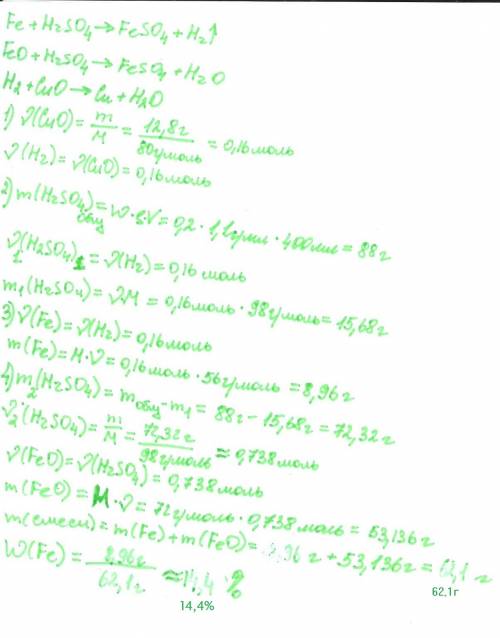 Fe + H2SO4 → FeSO4 + H2↑
FeO + H2SO4 → FeSO4 + H2O
H2 + CuO → Cu + H2O
1) ν(CuO) = m/M = 12,8г/80г/моль = 0,16 моль
ν(H2) = ν(CuO) = 0,16 моль
2) m(H2SO4)общ = W·ρ·V = 0,2 · 1,1г/мл · 400мл = 88г
ν1(H2SO4)1 = ν(H2) = 0,16 моль
m1(H2SO4) = ν·M = 0,16моль · 98г/моль = 15,68г
3) ν(Fe) = ν(H2) = 0,16моль
m(Fe) = M·ν = 0,16моль · 56г/моль = 8,96г
4) m2(H2SO4) = mобщ - m1 = 88г - 15,68г = 72,32г
ν2(H2SO4) = m/M = 72,32г/98г/моль ≈ 0,738моль
ν(FeO) = ν(H2SO4) = 0,738моль
m(FeO) = M·ν = 72г/моль · 0,738моль = 53,136г
m(смеси) = m(Fe) + m(FeO) = 8,96г + 53,136г = 62,1г
W(Fe) = 8,96г/62,1г ≈ 14,4%
62,1г
14,4%